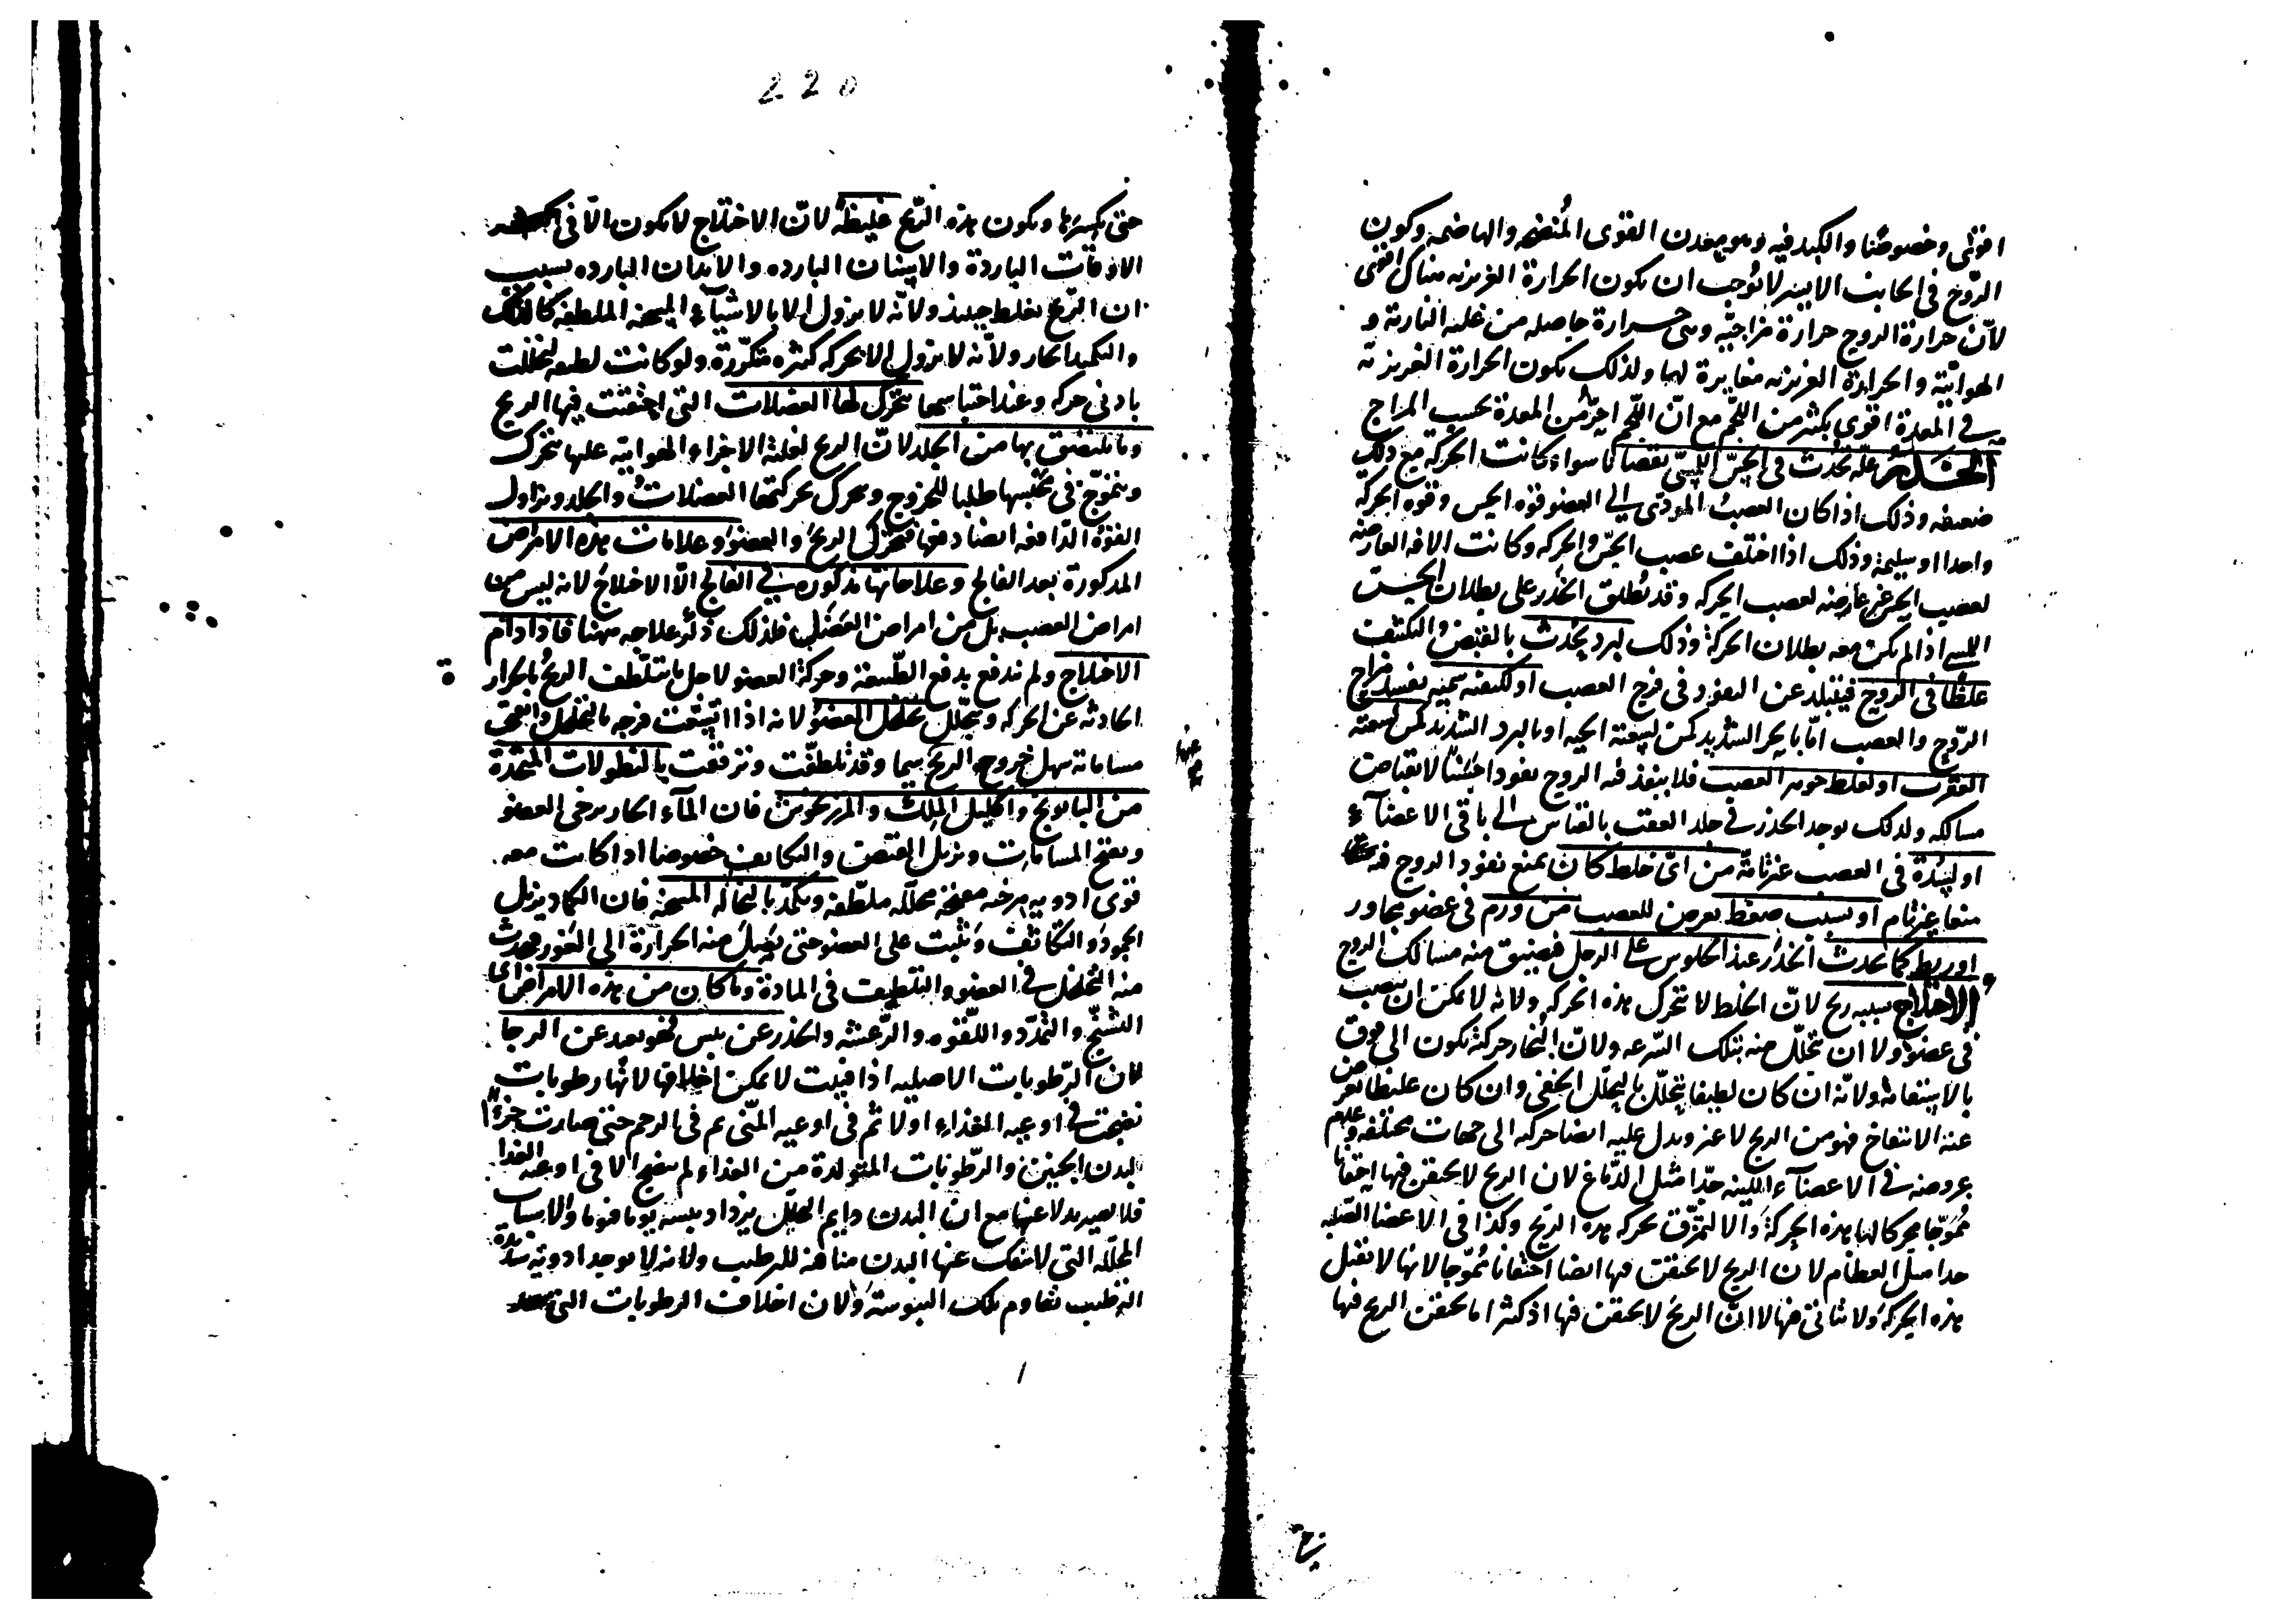 اقوى وخصوصًا والكبد فيه وهو معدن القوى المُنضجه والهاضمه وكون
الروح فى الجانب الايسر لا يُوجب ان يكون الحرارة الغريزيه هناك اقوى
لاّن حرارة الروح حرارة مزاجيّه وهى حرارة حاصله من غلبه الناريّة و
الهوائيّة والحرارة الغريزيه مغايرة لها ولذلك يكون الحرارة الغريزيّة
فى المعدة اقوى بكثير من اللحم مع انّ اللحم احرّ من المعدة بحسب المزاج
الخدر علّه تحدُث فى الحِسّ اللمسّى نقصانا سواء كانت الحركه مع ذلك
ضعيفه وذلك اذا كان العصبُ المؤدى الى العضو قوه الحس وقوه الحركه
واحدا او سليمة وذلك اذا اختلف عصب الحسّ والحركه وكانت الافه العارضه
لعصب الحس غير عارضه لعصب الحركه وقد يُطلق الخدر على بطلان الحس
اللمسى اذا لم يكن معه بطلان الحركة وذلك لبرد يحدث بالقبض والتكثيف
غلظًا فى الروح فيتبلد عن النفوذ فى فرج العصب او لكيفيه سمّيه تفسد مزاج
الروح والعصب امّا بالحر الشديد كمن لسعته الحيه او بالبرد الشديد كمن لسعته
العقرب او لغلظ جوهر العصب فلا ينفذ فيه الروح نفوذا حَسَنًا لانقباض
مسالكه ولذلك يوجد الخدر فى جلد العقب بالقياس الى باقى الاعضآء
او لسُدة فى العصب غير تامّة من اىّ خلط كان يمنع نفوذ الروح فيه
منعا غير تام او بسبب ضغط يعرض للعصب من ورم فى عضو مجاور
او ربط كما يحدث الخدر عند الجلوس على الرجل فيضيق منه مسالك الروح
الاختلاج سببه ريح لانّ الخلط لا يتحرك هذه الحركه ولانه لا يمكن ان ينصب
فى عضو ولا ان يتحلّل منه بتلك السّرعه ولانّ البُخار حركته يكون الى فوق
بالاستقامة ولانّه ان كان لطيفا يتحلّل بالتحلّل الخفى وان كان غليظا يعرض
عنه الانتفاخ فهو من الريح لا غير ويدل عليه ايضا حركته الى جهات مختلفه وعدم
عروضه فى الاعضآء اللينه جدّا مثل الدّماغ لان الريح لا يحتقن فيها احتقانا
مُموّجا محركا لها هذه الحركة والا لتمزّق بحركه هذه الريح وكذا فى الاعضا الصلبه
جدا مثل العظام لان الريح لا يحتقن فيها ايضا احتقانا مُموّجا لانها لا تقبل
هذه الحركة ولا تتاتى فيها لا انّ الريح لا يحتقن فيها اذ كثيرا ما يحتقن الريح فيها
220
حتى يكسرها ويكون هذه الرّيح غليظة لانّ الاختلاج لا يكون الّا فى
الاوقات الباردة والاسنان البارده والابدان البارده بسبب
ان الريح تغلظ حينئذ ولانّه لا يزول الا بالاشيآء المسخنه الملطفه كالدلك
والتكميد الحار ولانّه لا يزول الا بحركه كثيره متكرّرة ولو كانت لطيفه لتحللت
بادنى حركه وعند احتباسها يتحرك لها العضلات التى احتقنت فيها الريح
وما يلتصق بها من الجلد لانّ الريح لغلبة الاجزاء الهوائيه عليها تتحرك
وتتموّج فى محبسها طلبا للخروج ويحرك بحركتها العضلاتُ والجلد ويزاول
القوّة الدّافعه ايضا دفعها فيتحرك الريحُ والعضو وعلامات هذه الامراض
المذكورة بعد الفالج وعلاجاتها مذكوره فى الفالج الّا الاختلاج لانه ليس من
امراض العصب بل من امراض العَضَل فلذلك ذكر علاجه ههنا فاذا دام
الاختلاج ولم يندفع بدفع الطّبيعة وحركة العضو لاجل ما يتلطّف الريحُ بالحرارة
الحادثه عن الحركه ويتحلّل تخلخل العضو لانه اذا اتّسعت فرجه بالتخلخل وانفتح
مساماته سهل خروج الريح سيما وقد تلطفّت وترققّت بالنطولات المتخذة
من البابونج واكليل الملك والمرزنجوش فان المآء الحار يرخى العضو
ويفتح المسامات ويزيل القبض والتكاثف خصوصا اذا كانت معه
قوى ادويه مرخيه مفتحة محلّله ملطّفه ويكمّد بالنخاله المسخنه فان التكماد يزيل
الجمودَ والتكاثف ويثبت على العضو حتى يَصِل منه الحرارة الى الغور فيحدث
منه التخلخل فى العضو والتلطيف فى المادة وما كان من هذه الامراض اى
التشنّج والتمدّد واللّقوه والرّعشه والخدر عن يبس فهو بعيد عن الرجا
لان الرّطوبات الاصليه اذا فنيت لا يمكن اخلافها لانّها رطوبات
نضجت فى اوعيه الغذاء اولا ثم فى اوعيه المنّى ثم فى الرحم حتى صارت جزءًا
لبدن الجنين والرّطوبات المتولدة من الغذاء لم ينضج الا فى اوعيه الغذا
فلا يصير بدلا عنها مع ان البدن دايم التحلّل يزداد يبسه يوما فيوما والاسباب
المحلّله التى لا ينفك عنها البدن مناهضه للترطيب ولانه لا يوجد ادوية شديدة
الترطيب تقاوم تلك اليبوسة ولان اخلاف الرطوبات التى